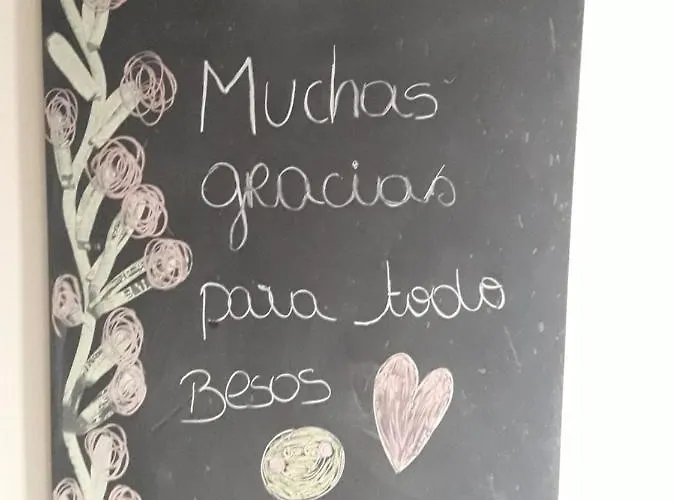 Muchas
gracias
para todo
Besos